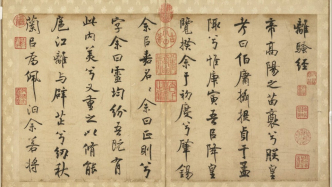 離騷經
帝高陽之苗裔兮朕皇
考曰伯庸攝提貞于孟
陬兮惟庚寅吾以降皇
覽揆余于初度兮肇錫
余以嘉名名余曰正則兮
字余曰靈均紛吾既有
此內美兮又重之以脩能
扈江離與辟芷兮紉秋
蘭以為佩汩余若將